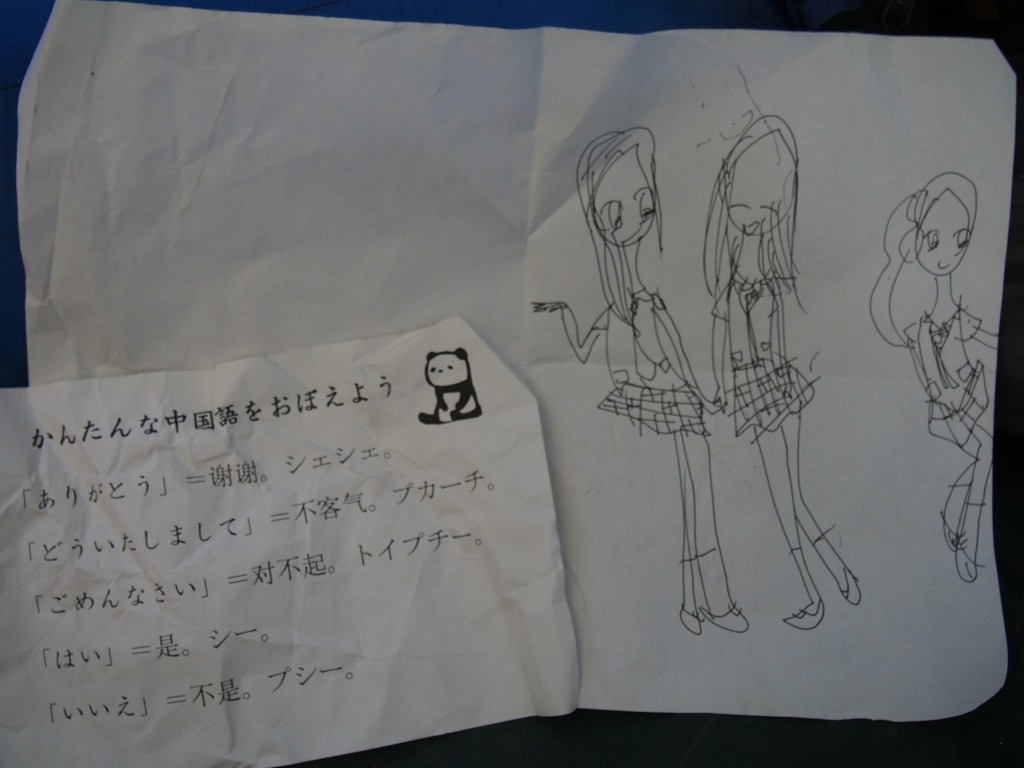 かんたんな中国語をおぼえよう
「ありがとう」＝谢谢。シェシェ。
「どういたしまして」＝不客气。プカーチ。
「ごめんなさい」＝对不起。トイプチー。
「はい」＝是。シー。
「いいえ」＝不是。プシー。